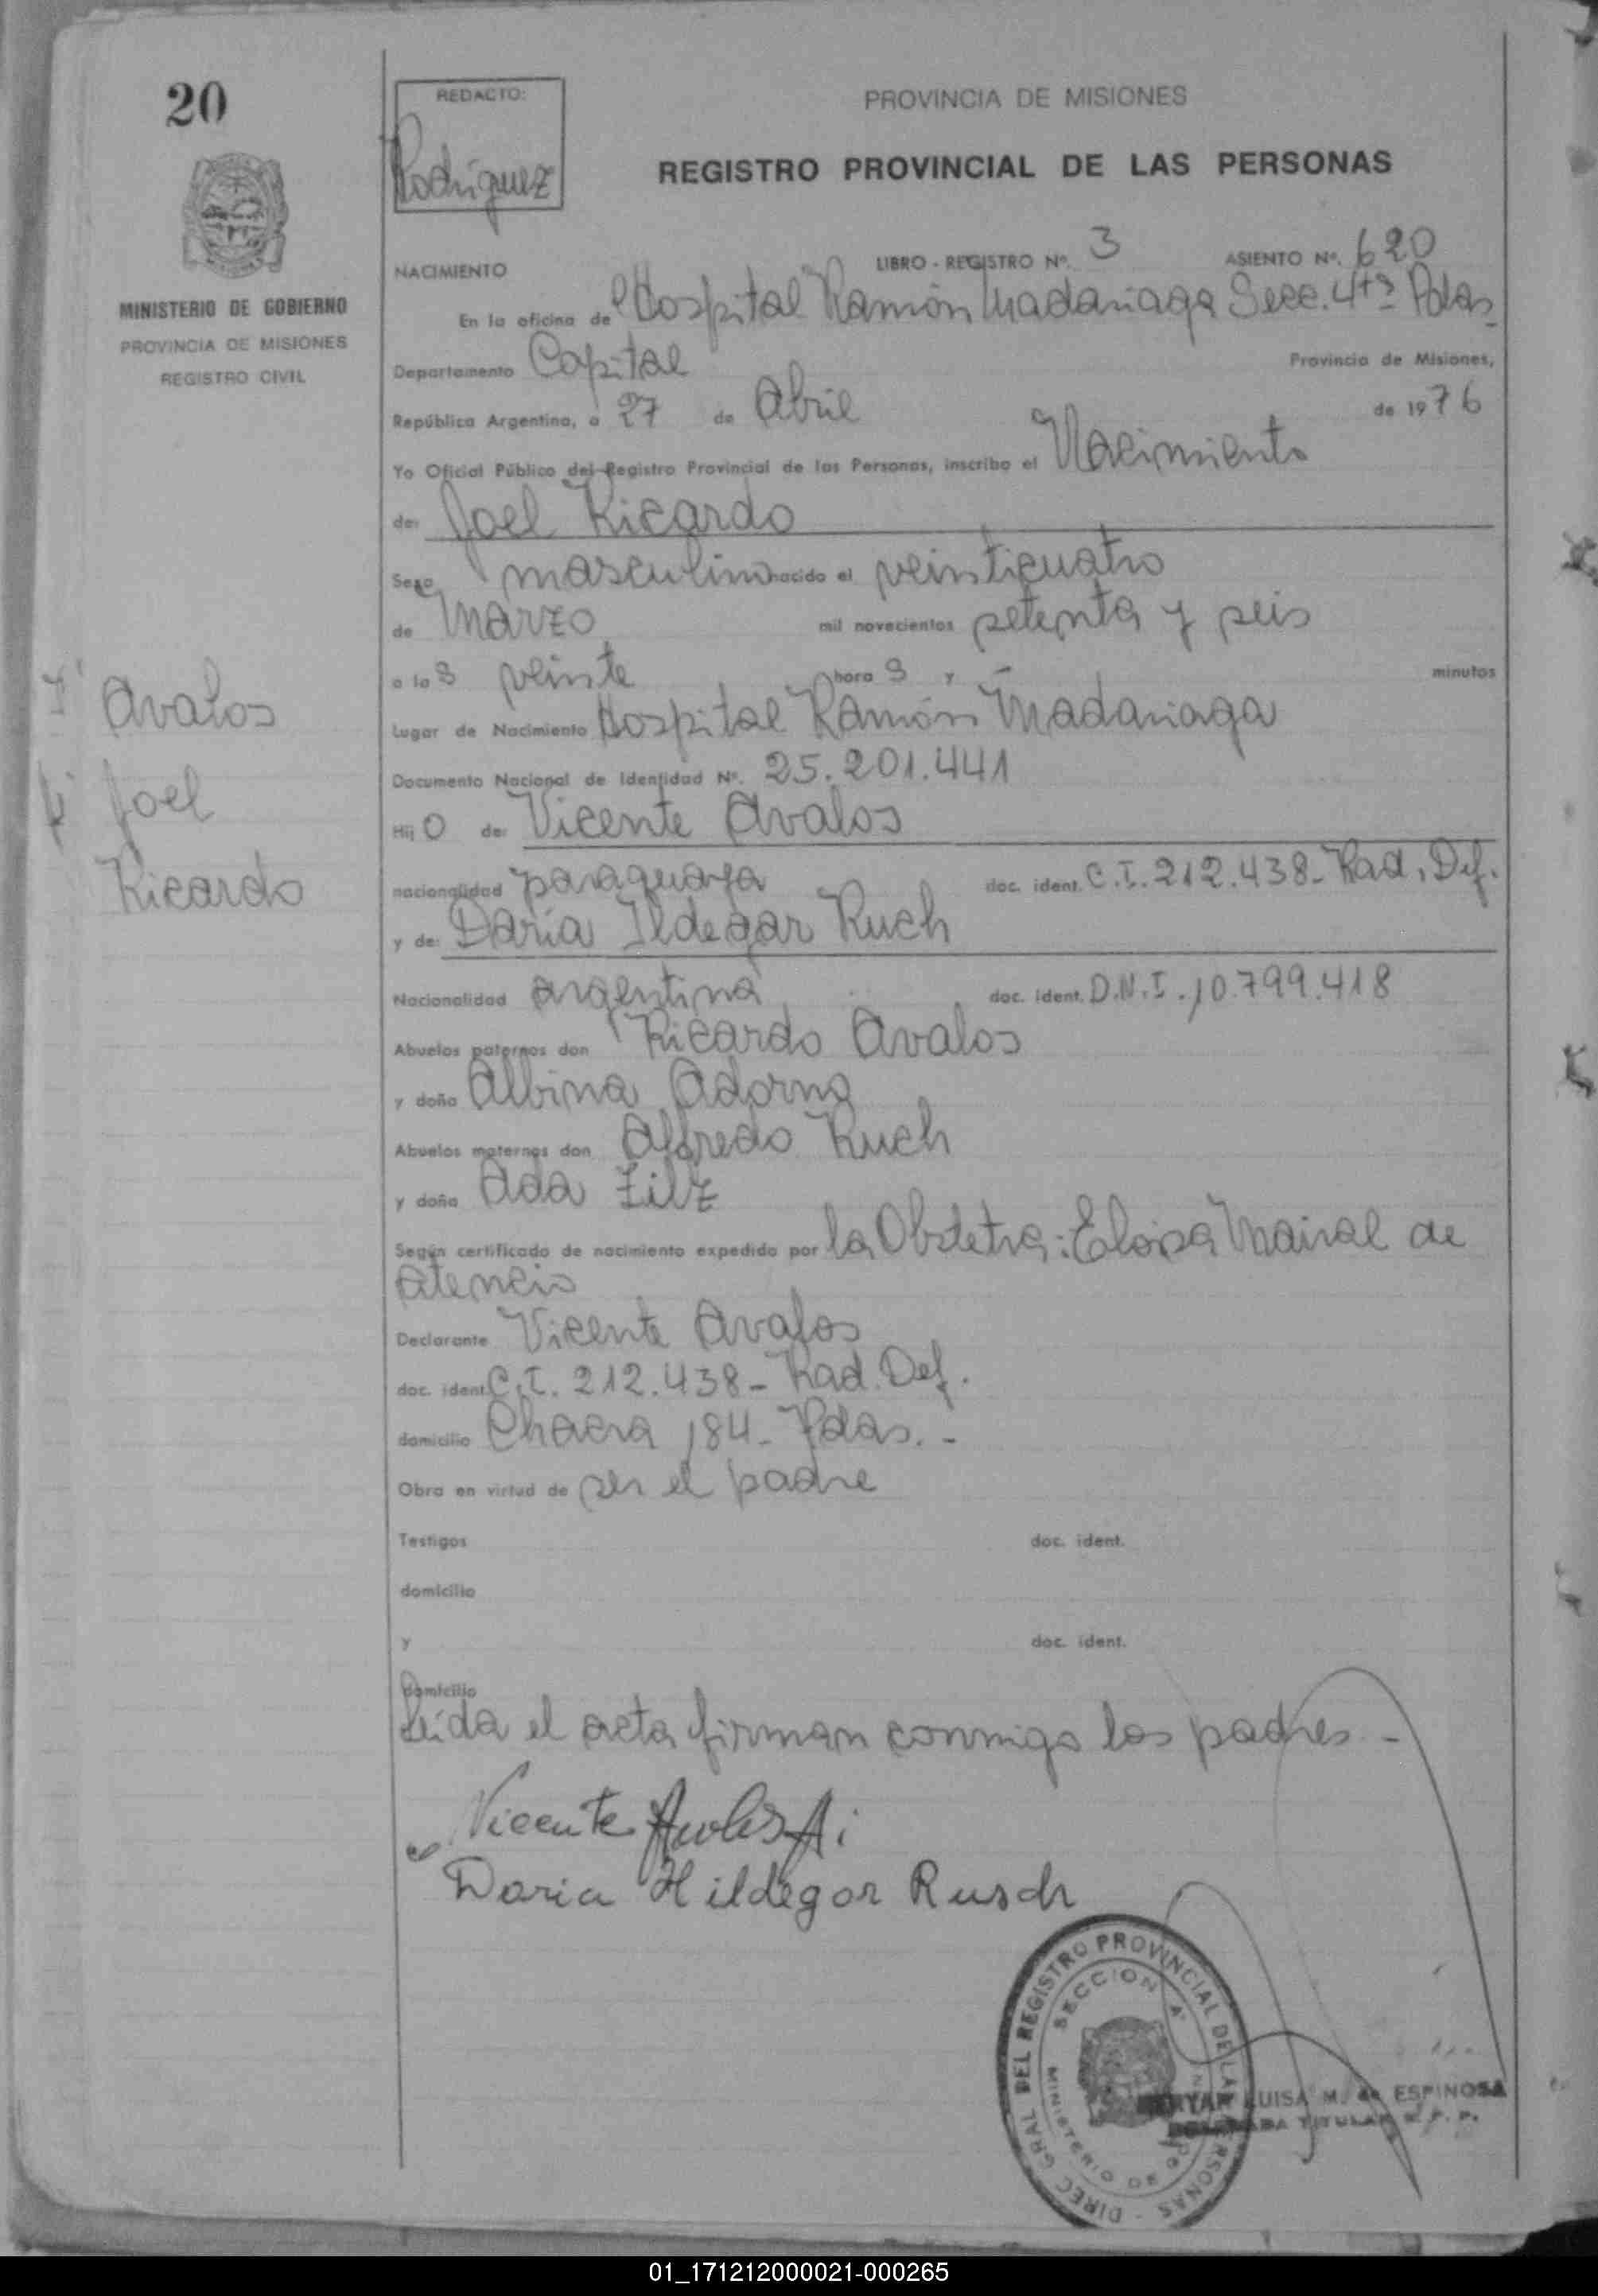 20
REDACTO:
Rodriguez
PROVINCIA DE MISIONES
REGISTRO PROVINCIAL DE LAS PERSONAS
MINISTERIO DE GOBIERNO
PROVINCIA DE MISIONES
REGISTRO CIVIL
NACIMIENTO
LIBRO - REGISTRO Nº. 3 ASIENTO Nº. 620
En la oficina de Hospital Ramón Madariaga Secc. 4ta Pdas.
Departamento Capital Provincia de Misiones,
República Argentina, a 27 de Abril de 1976
Yo Oficial Público del Registro Provincial de las Personas, inscribo el Nacimiento
de: Joel Ricardo
Sexo masculino nacido el veinticuatro
de Marzo mil novecientos setenta y seis
a las veinte horas y — minutos
Lugar de Nacimiento Hospital Ramón Madariaga
Documento Nacional de Identidad Nº. 25.201.441
Hijo de: Vicente Avalos
nacionalidad paraguaya doc. ident. C.I. 212.438- Rad. Def.
y de: Daria Ildegar Ruch
Nacionalidad argentina doc. ident. D.N.I. 10.799.418
Abuelos paternos don Ricardo Avalos
y doña Albina Adorno
Abuelos maternos don Alfredo Ruch
y doña Ada Zilz
Según certificado de nacimiento expedido por la Obstetra: Eloisa Mairal de
Atencio
Declarante Vicente Avalos
doc. ident. C.I. 212.438- Rad. Def.
domicilio Chacra 184- Pdas.-
Obra en virtud de ser el padre
Testigos doc. ident.
domicilio
y doc. ident.
domicilio
Leida el acta firman conmigo los padres.-
Avalos
Joel
Ricardo
Vicente Avalos
Daria Hildegar Rusch
DIREC. GRAL DEL REGISTRO PROVINCIAL DE LAS PERSONAS
SECCION 4ª
LUISA M. de ESPINOSA
TITULAR R. P. P.
01_171212000021-000265